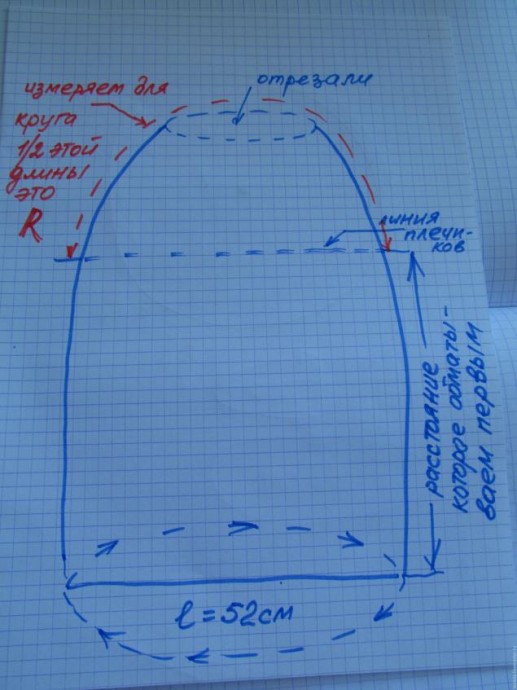 измеряем для
круга
1/2 этой
длины
это
R
отрезали
линия
плечи-
ков
расстояние
которое обматы-
ваем первым
l = 52см